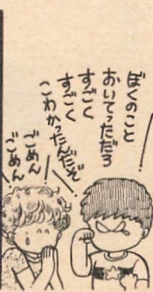 ぼくのこと
おいてっただろ
すごく
すごく
こわかったんだぞ
ごめん
ごめん